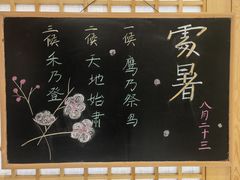 處暑
八月二十三
一候 鹰乃祭鸟
二候 天地始肃
三候 禾乃登